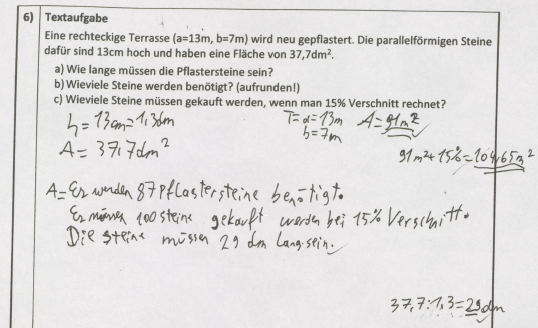 6) Textaufgabe
Eine rechteckige Terrasse (a=13m, b=7m) wird neu gepflastert. Die parallelförmigen Steine
dafür sind 13cm hoch und haben eine Fläche von 37,7dm².
a) Wie lange müssen die Pflastersteine sein?
b) Wieviele Steine werden benötigt? (aufrunden!)
c) Wieviele Steine müssen gekauft werden, wenn man 15% Verschnitt rechnet?
h = 13cm = 1,3dm T= a = 13m A = 91m²
b = 7m
A = 37,7dm²
91m² + 15% = 104,65m²
A = Es werden 87 Pflastersteine benötigt.
Es müssen 100 steine gekauft werden bei 15% Verschnitt.
Die steine müssen 29 dm lang sein.
37,7 : 1,3 = 29dm